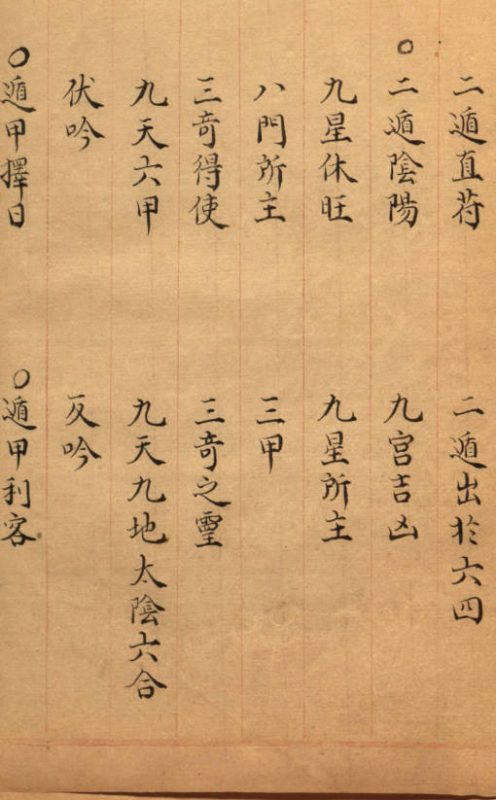 二遁直苻　二遁出於六四
○二遁陰陽　九宮吉凶
九星休旺　九星所主
八門所主　三甲
三奇得使　三奇之霊
九天六甲　九天九地太陰六合
伏吟　反吟
○遁甲擇日　○遁甲利客